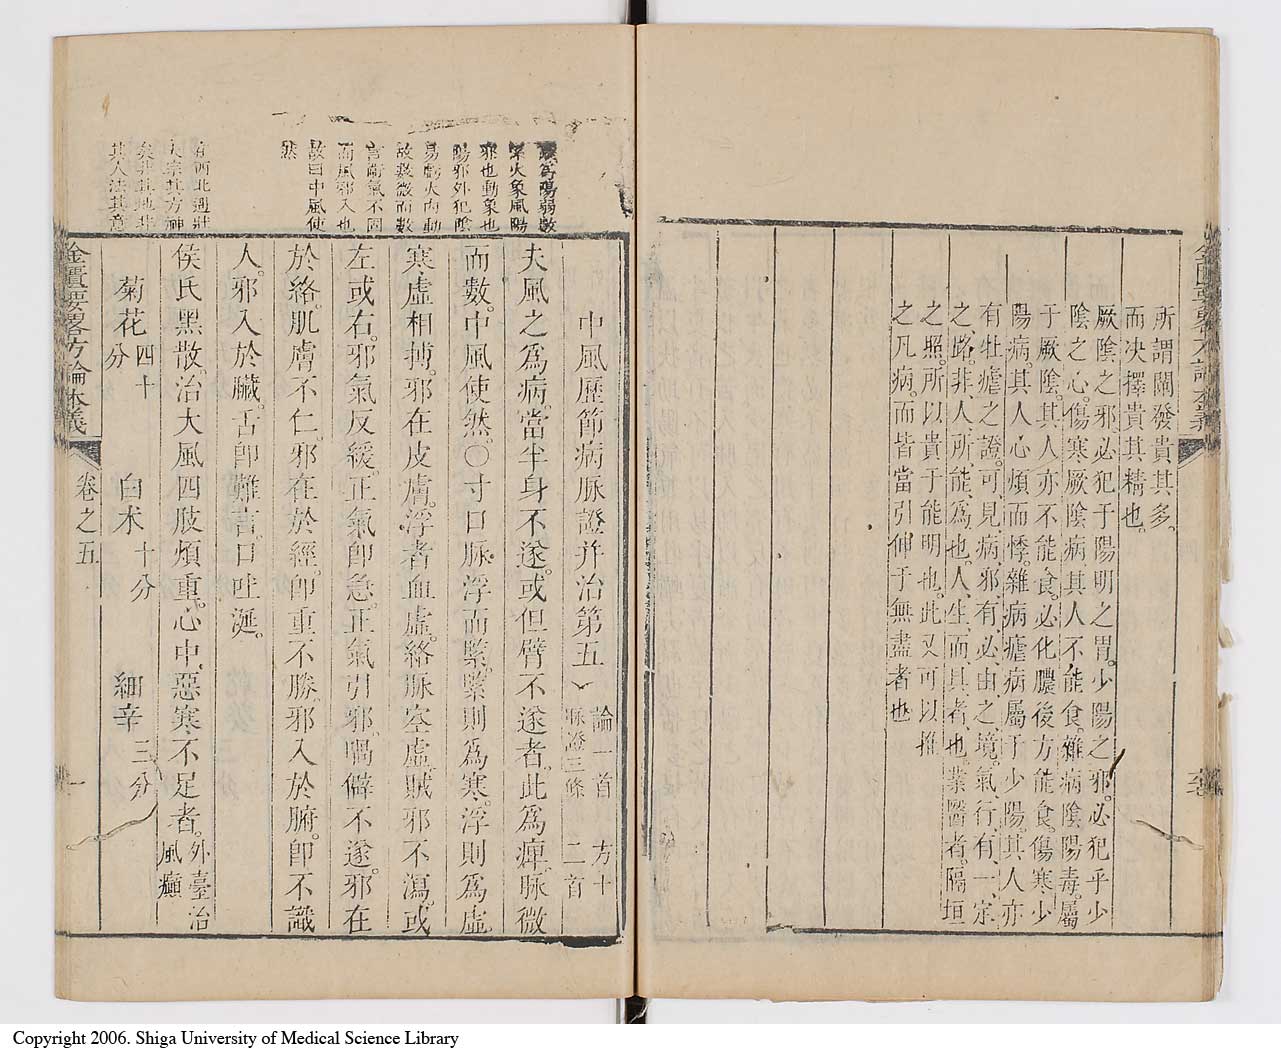 所謂闡發貴其多
而決擇貴其精也
厥陰之邪必犯于陽明之胃少陽之邪必犯乎少
陰之心傷寒厥陰病其人不能食雜病陰陽毒屬
于厥陰其人亦不能食必化膿後方能食傷寒少
陽病其人心煩而悸雜病瘧病屬于少陽其人亦
有牡瘧之證可見病邪有必由之境氣行有一定
之路非人所能爲也人生而具者也業醫者隔垣
之照所以貴于能明也此又可以推
之凡病而皆當引伸于無盡者也
弱數
火象風陽
邪也動象也
陽邪外犯陰
易虧火內動
故數微而數
言衛氣不固
而風邪入也
故曰中風使
然
中風歷節病脉證并治第五
論一首
脉證三條
方十二首
夫風之爲病當半身不遂或但臂不遂者此爲痺脉微
而數中風使然〇寸口脉浮而緊緊則爲寒浮則爲虛
寒虛相搏邪在皮膚浮者血虛絡脉空虛賊邪不瀉或
左或右邪氣反緩正氣卽急正氣引邪喎僻不遂邪在
於絡肌膚不仁邪在於經卽重不勝邪入於腑卽不識
人邪入於臟舌卽難言口吐涎
西北遇壯
人宗其方神
矣非其地非
其人法其意
侯氏黑散治大風四肢煩重心中惡寒不足者
外臺治
風癲
菊花四十分
白术十分
細辛三分
金匱要畧方論本義
卷之五
一
Copyright 2006. Shiga University of Medical Science Library